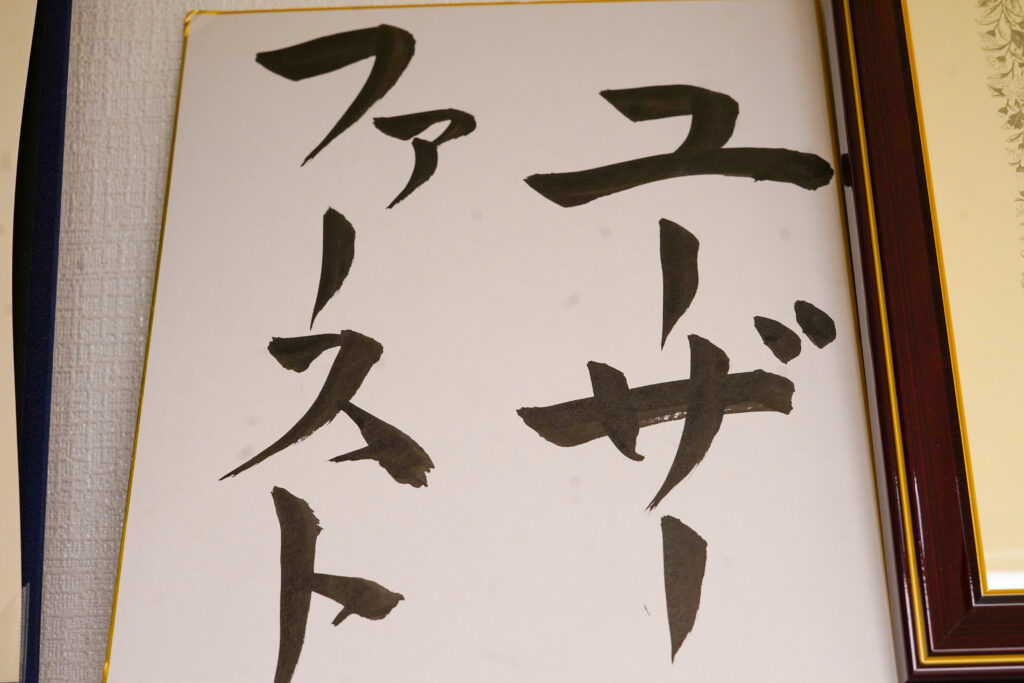 ユーザー
ファースト